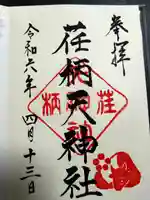 奉拝
荏柄天神社
令和六年四月十三日
荏柄